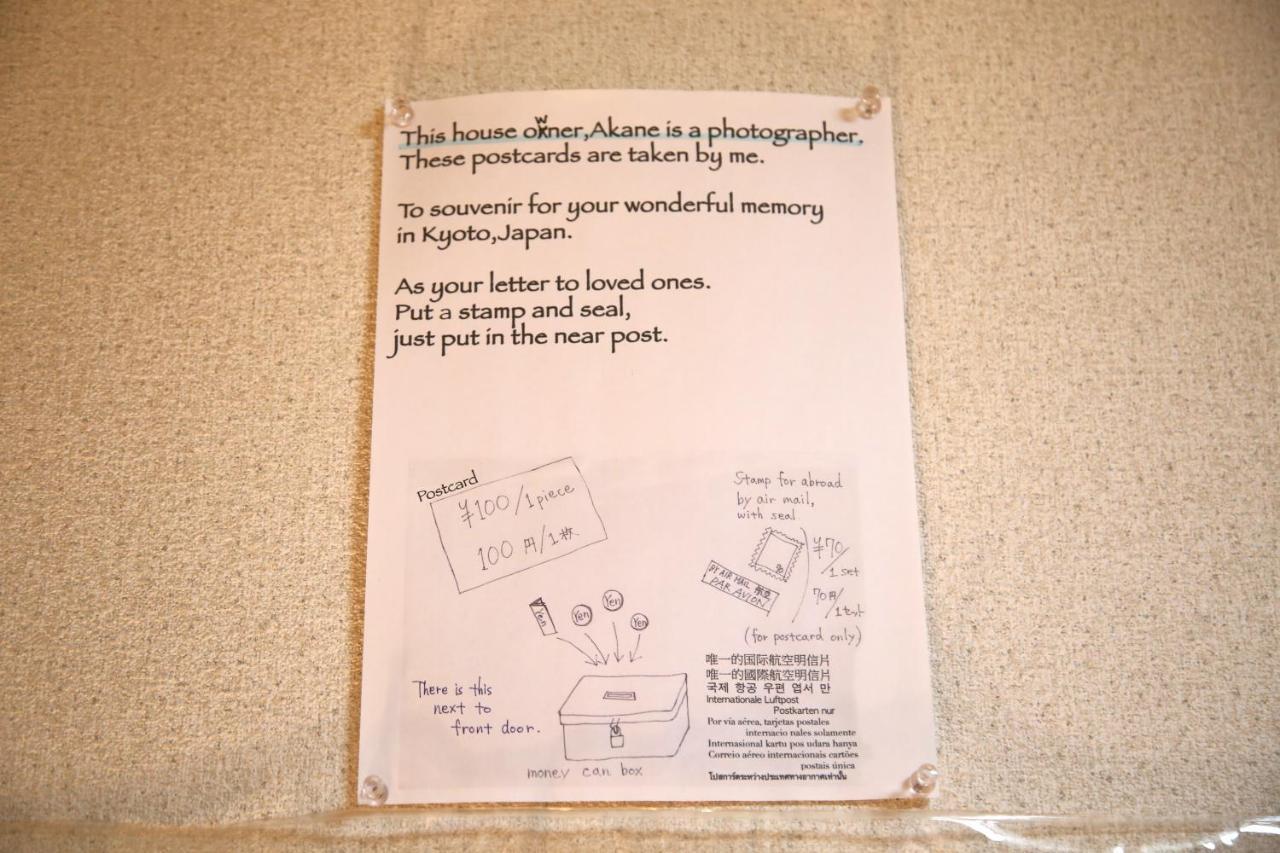 This house owner,Akane is a photographer.
These postcards are taken by me.
To souvenir for your wonderful memory
in Kyoto,Japan.
As your letter to loved ones.
Put a stamp and seal,
just put in the near post.
Postcard
¥100/1piece
100円/1枚
Stamp for abroad
by air mail,
with seal.
90
BY AIR MAIL 航空
PAR AVION
¥70/
1 set
70円/
1セット
(for postcard only)
Yen
Yen
Yen
Yen
There is this
next to
front door.
money can box
唯一的国际航空明信片
唯一的國際航空明信片
국제 항공 우편 엽서 만
Internationale Luftpost
Postkarten nur
Por vía aérea, tarjetas postales
internacio nales solamente
Internasional kartu pos udara hanya
Correio aéreo internacionais cartões
postais única
โปสการ์ดระหว่างประเทศทางอากาศเท่านั้น